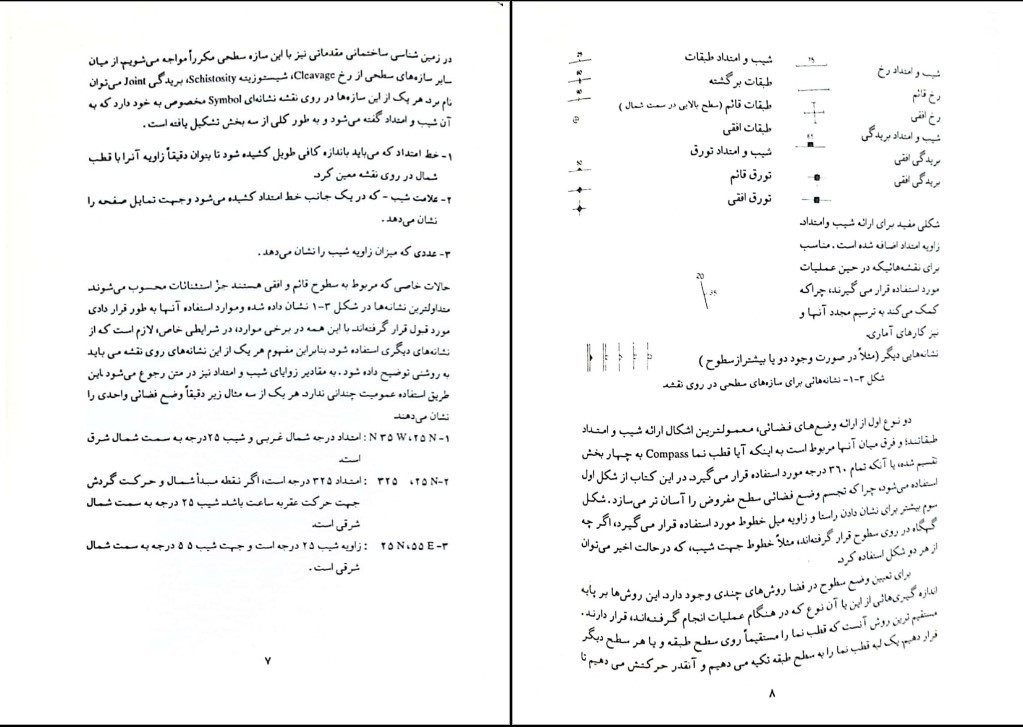 در زمین شناسی ساختمانی مقدماتی نیز با این سازه سطحی مکرراً مواجه می‌شویم. از میان
سایر سازه‌های سطحی از رخ Cleavage، شیستوزیته Schistosity، بریدگی Joint می‌توان
نام برد. هر یک از این سازه‌ها در روی نقشه نشانه‌ای Symbol مخصوص به خود دارد که به
آن شیب و امتداد گفته می‌شود و به طور کلی از سه بخش تشکیل یافته است .
۱- خط امتداد که می‌باید باندازه کافی طویل کشیده شود تا بتوان دقیقاً زاویه آنرا با قطب
شمال در روی نقشه معین کرد.
۲- علامت شیب - که در یک جانب خط امتداد کشیده می‌شود وجهت تمایل صفحه را
نشان می‌دهد .
۳- عددی که میزان زاویه شیب را نشان می‌دهد .
حالات خاصی که مربوط به سطوح قائم و افقی هستند جزْ استثنائات محسوب می‌شوند.
متداولترین نشانه‌ها در شکل ۳-۱ نشان داده شده وموارد استفاده آنها به طور قرار دادی
مورد قبول قرار گرفته‌اند. با این همه در برخی موارد، در شرایطی خاص، لازم است که از
نشانه‌های دیگری استفاده شود. بنابراین مفهوم هر یک از این نشانه‌های روی نقشه می باید
به روشنی توضیح داده شود . به مقادیر زوایای شیب و امتداد نیز در متن رجوع می‌شود. این
طریق استفاده عمومیت چندانی ندارد. هر یک از سه مثال زیر دقیقاً وضع فضائی واحدی را
نشان می‌دهند.
۱- N ۳۵ W، ۲۵ N : امتداد درجه شمال غربی و شیب ۲۵درجه به سمت شمال شرق
است.
۲- ۳۲۵ ، ۲۵ N : امتداد ۳۲۵ درجه است، اگر نقطه مبدأ شمال و حرکت گردش
جهت حرکت عقربه ساعت باشد. شیب ۲۵ درجه به سمت شمال
شرقی است.
۳- ۲۵ N، ۵۵ E : زاویه شیب ۲۵ درجه است و جهت شیب ۵۵ درجه به سمت شمال
شرقی است .
۷
شیب و امتداد طبقات
طبقات برگشته
طبقات قائم (سطح بالایی در سمت شمال )
طبقات افقی
شیب و امتداد تورق
تورق قائم
تورق افقی
شیب و امتداد رخ
رخ قائم
رخ افقی
شیب و امتداد بریدگی
بریدگی افقی
بریدگی افقی
شکلی مفید برای ارائه شیب وامتداد.
زاویه امتداد اضافه شده است . مناسب
برای نقشه‌هائیکه در حین عملیات
مورد استفاده قرار می گیرند، چراکه
کمک می‌کند به ترسیم مجدد آنها و
نیز کارهای آماری.
20
نشانه‌هایی دیگر (مثلاً در صورت وجود دو یا بیشترازسطوح )
شکل ۳-۱- نشانه‌هائی برای سازه‌های سطحی در روی نقشه.
دو نوع اول از ارائه وضع‌های فضائی، معمولترین اشکال ارائه شیب و امتداد
طبقاتند؛ و فرق میان آنها مربوط است به اینکه آیا قطب نما Compass به چهار بخش
تقسیم شده، یا آنکه تمام ۳۶۰ درجه مورد استفاده قرار می‌گیرد. در این کتاب از شکل اول
استفاده می‌شود، چرا که تجسم وضع فضائی سطح مفروض را آسان تر می‌سازد. شکل
سوم بیشتر برای نشان دادن راستا و زاویه میل خطوط مورد استفاده قرار می‌گیرد، اگر چه
گهگاه در روی سطوح قرار گرفته‌اند، مثلاً خطوط جهت شیب، که درحالت اخیر می‌توان
از هر دو شکل استفاده کرد.
برای تعیین وضع سطوح در فضا روش‌های چندی وجود دارد. این روش‌ها بر پایه
اندازه گیری‌هائی از این یا آن نوع که در هنگام عملیات انجام گرفته‌اند، قرار دارند.
مستقیم ترین روش آنست که قطب نما را مستقیماً روی سطح طبقه و یا هر سطح دیگر
قرار دهیم. یک لبه قطب نما را به سطح طبقه تکیه می دهیم و آنقدر حرکتش می دهیم تا
۸